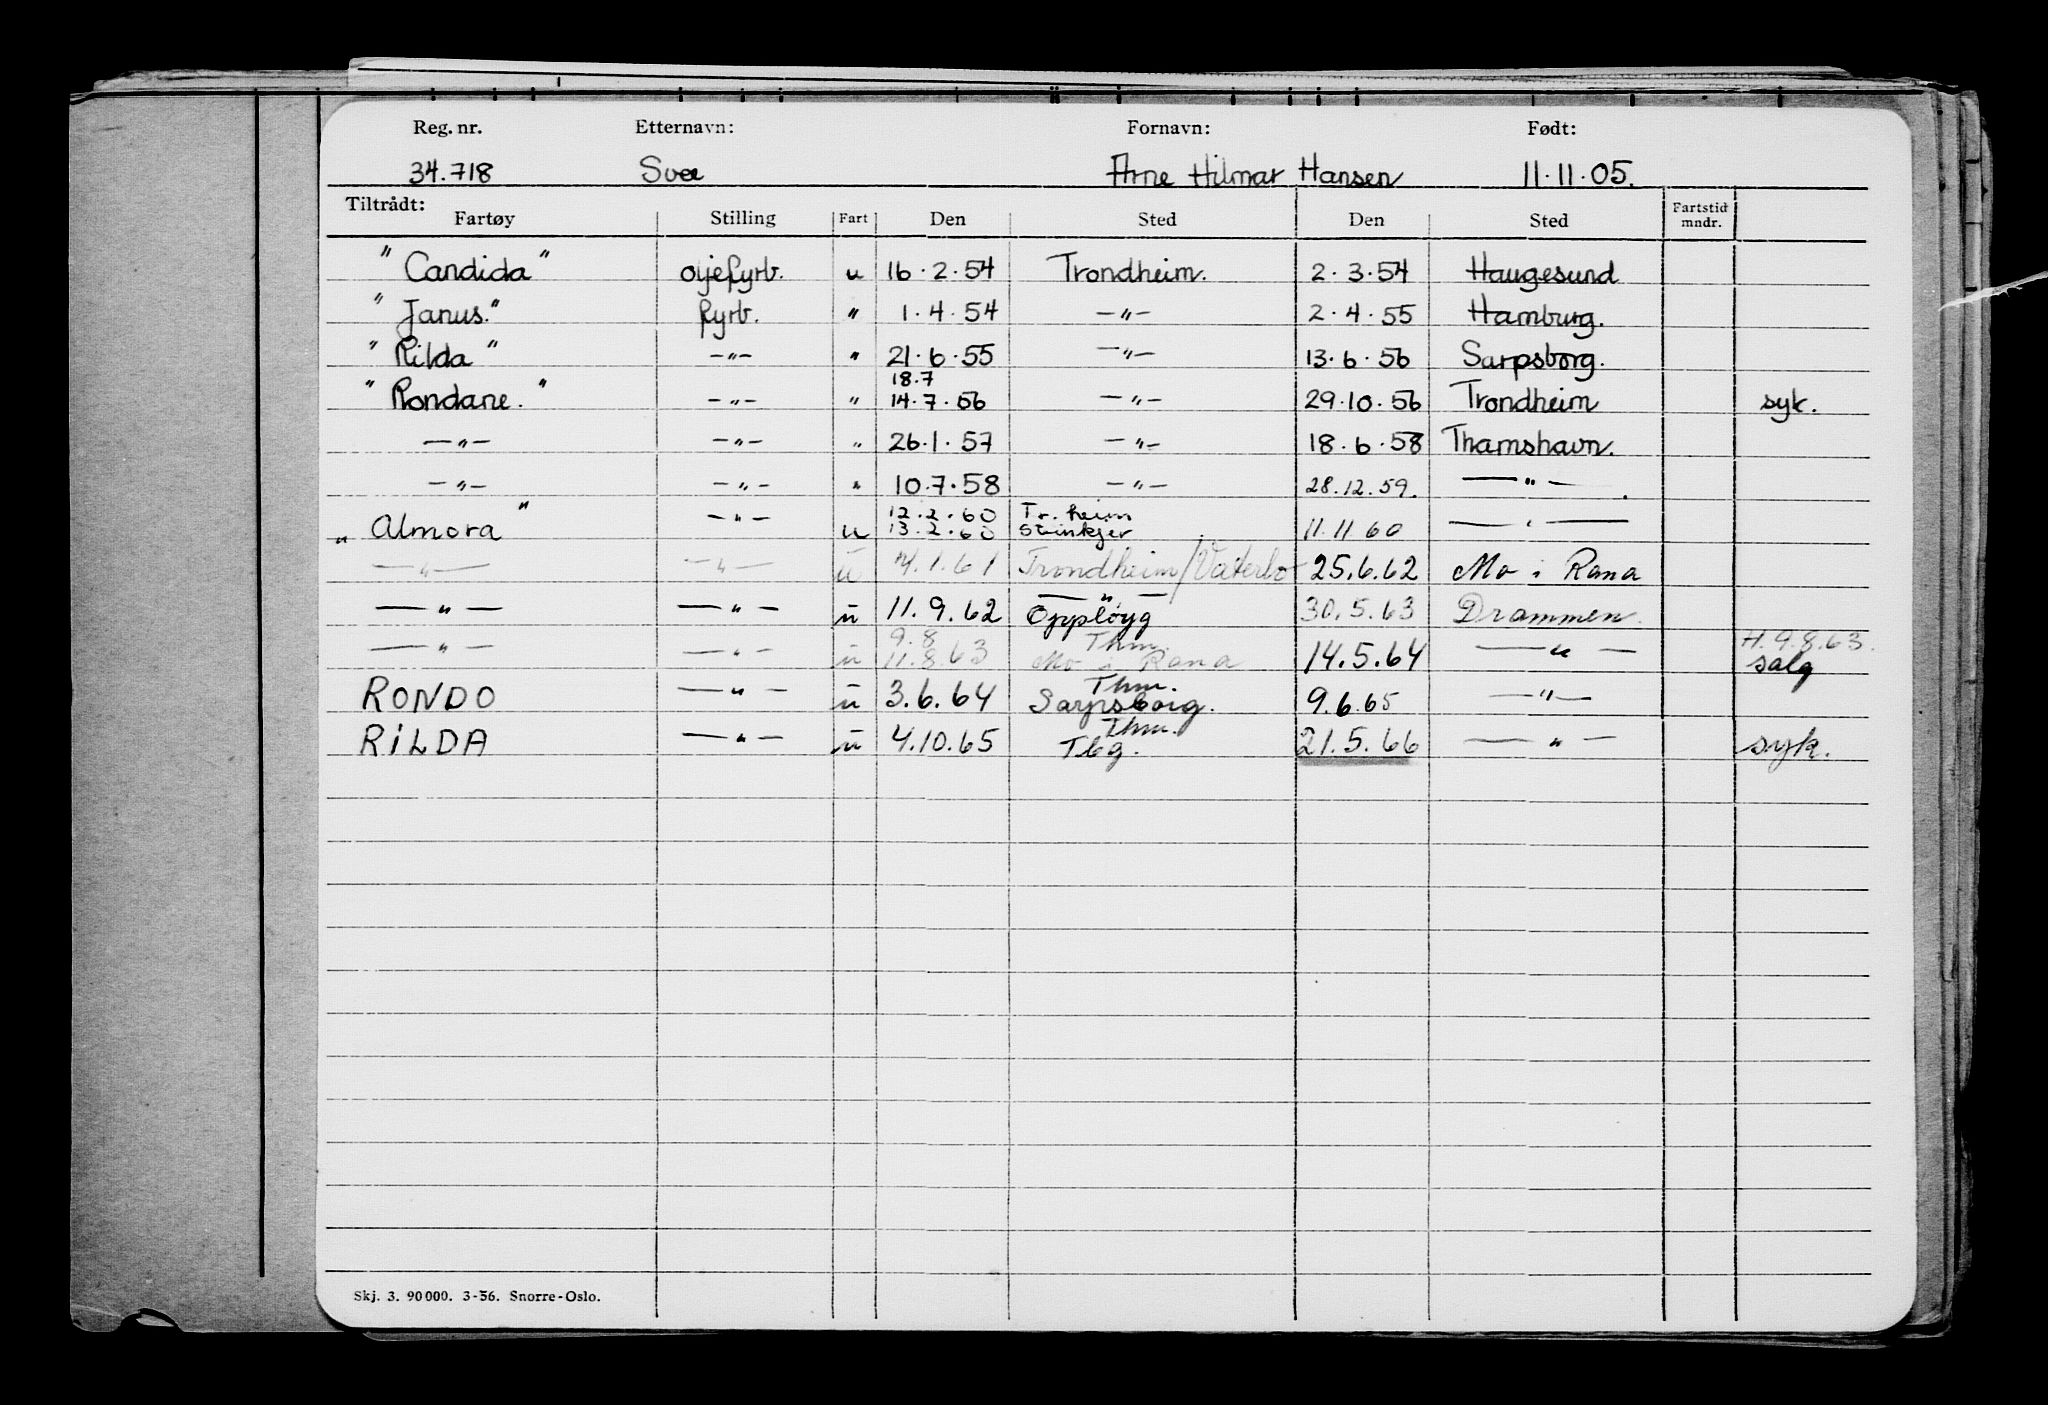 Reg. nr. Etternavn: Fornavn: Født:
34.718 Svee Arne Hilmar Hansen 11.11.05.
Tiltrådt:
Fartøy Stilling Fart Den Sted Den Sted Fartstid mndr.
"Candida" oljefyrb. u 16.2.54 Trondheim. 2.3.54 Haugesund
"Janus." fyrb. " 1.4.54 —"— 2.4.55 Hamburg.
"Rilda" —"— " 21.6.55 —"— 13.6.56 Sarpsborg.
18.7
"Rondane." —"— " 14.7.56 —"— 29.10.56 Trondheim syk.
—"— —"— " 26.1.57 —"— 18.6.58 Thamshavn.
—"— —"— " 10.7.58 —"— 28.12.59. —"— .
12.2.60 Tr.heim
"Almora" —"— u 13.2.60 Steinkjer 11.11.60 —"—
—"— —"— u 4.1.61 Trondheim/ 25.6.62 Mo i Rana
—"—
—"— —"— u 11.9.62 Oppløyg 30.5.63 Drammen.
9.8 Thm. H. 9.8.63.
—"— —"— u 11.8.63 Mo i Rana 14.5.64 —"— salg
Thm.
RONDO —"— u 3.6.64 Sarpsborg. 9.6.65 —"—
Thm.
RILDA —"— u 4.10.65 Tbg. 21.5.66 —"— syk.
Skj. 3. 90 000. 3-56. Snorre-Oslo.